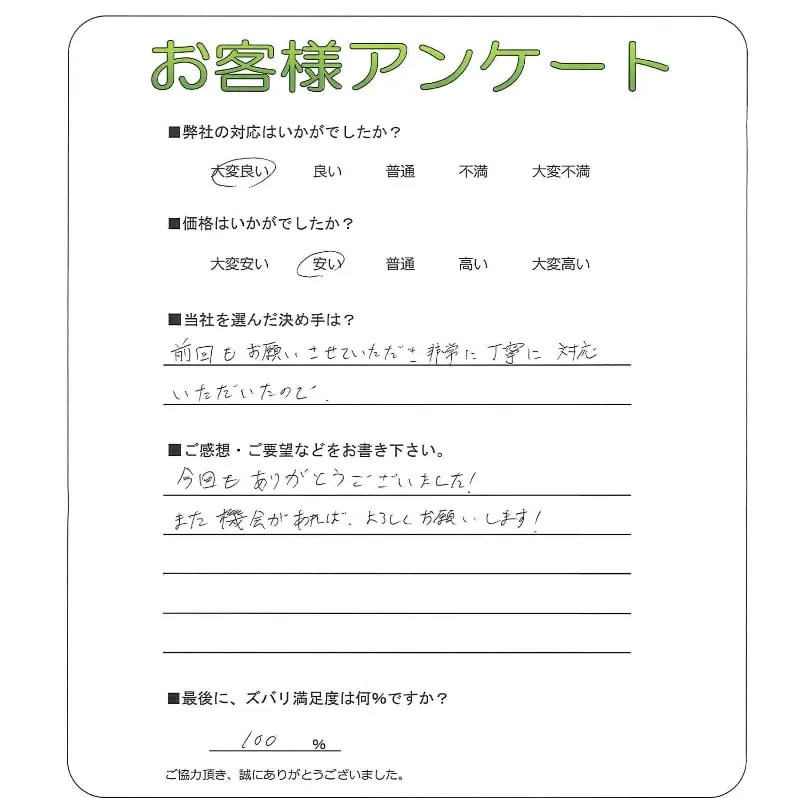 お客様アンケート
■弊社の対応はいかがでしたか？
大変良い 良い 普通 不満 大変不満
■価格はいかがでしたか？
大変安い 安い 普通 高い 大変高い
■当社を選んだ決め手は？
前回もお願いさせていただき非常に丁寧に対応
いただいたので.
■ご感想・ご要望などをお書き下さい。
今回もありがとうございました!
また機会があれば、よろしくお願いします!
■最後に、ズバリ満足度は何%ですか？
100 %
ご協力頂き、誠にありがとうございました。